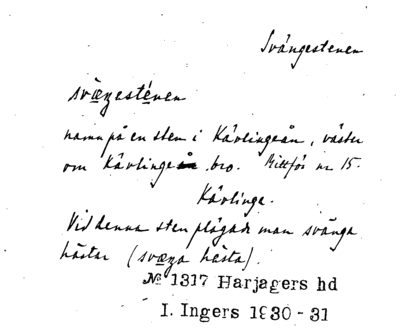 Svängestenen
svæŋesténen
namn på en sten i Kävlingeån, väster
om Kävlinge bro. Mittför nr 15.
Kävlinge.
Vid denna sten plägade man svänga
hästar (svæŋa hästa).
№ 1317 Harjagers hd
I. Ingers 1930-31